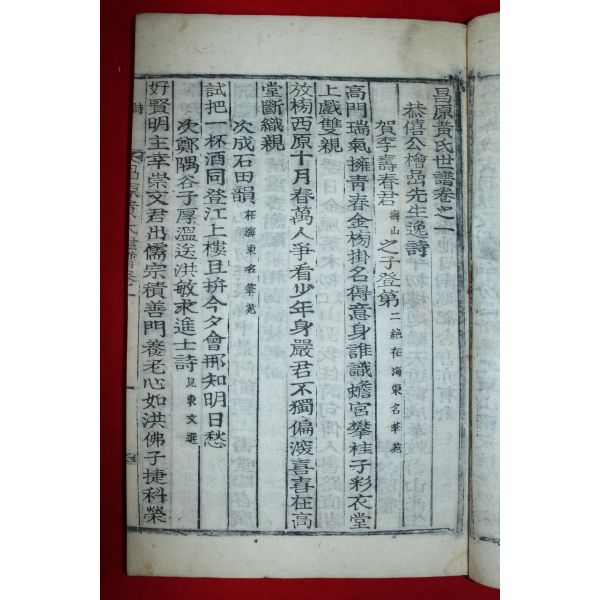 昌原黃氏世譜卷之一
恭僖公檜山先生逸詩
賀李壽春君壽山之子登第二絶在海東名華苑
高門瑞氣擁青春金榜掛名得意身誰識蟾宮攀桂子彩衣堂
上戲雙親
放榜西原十月春萬人爭看少年身嚴君不獨偏深喜喜在高
堂斷織親
次成石田韻在海東名華苑
試把一杯酒同登江上樓且拚今夕會那知明日愁
次鄭隅谷子厚溫送洪敏求進士詩見東文選
好賢明主幸崇文君出儒宗積善門養老心如洪佛子捷科榮
詩
昌原黃氏世譜卷一